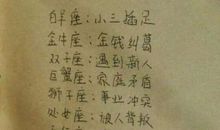 白羊座:小三插足
金牛座:金钱纠葛
双子座:遇到新人
巨蟹座:家庭矛盾
狮子座:事业冲突
处女座:被人背叛